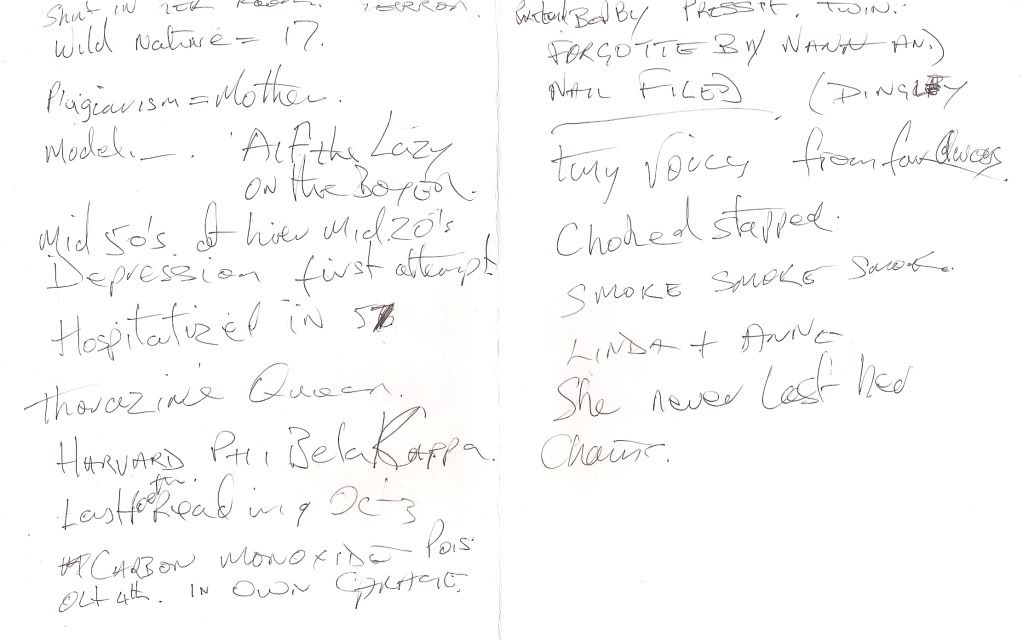 Shut in her room. Terror.
Wild Nature = 17.
Plagiarism = Mother.
Model. —. Alf the Lazy
on the Boyer.
Mid 50's & her Mid 20's
Depression first attempt
Hospitatized in 5
Thorazine Queen.
HARVARD PHi Beta Kappa.
Last Poetry Reading Oct 3
CARBON MONOXIDE Pois
Oct 4th. IN OWN GARAGE.
By PRESSIE. TWIN.
FORGOTTE BY NANN AN)
NAIL FILED) (DINGLEY
tiny voices from far aways
Choked stopped.
SMOKE SMOKE SMOK
LINDA + ANNE
She never lost her